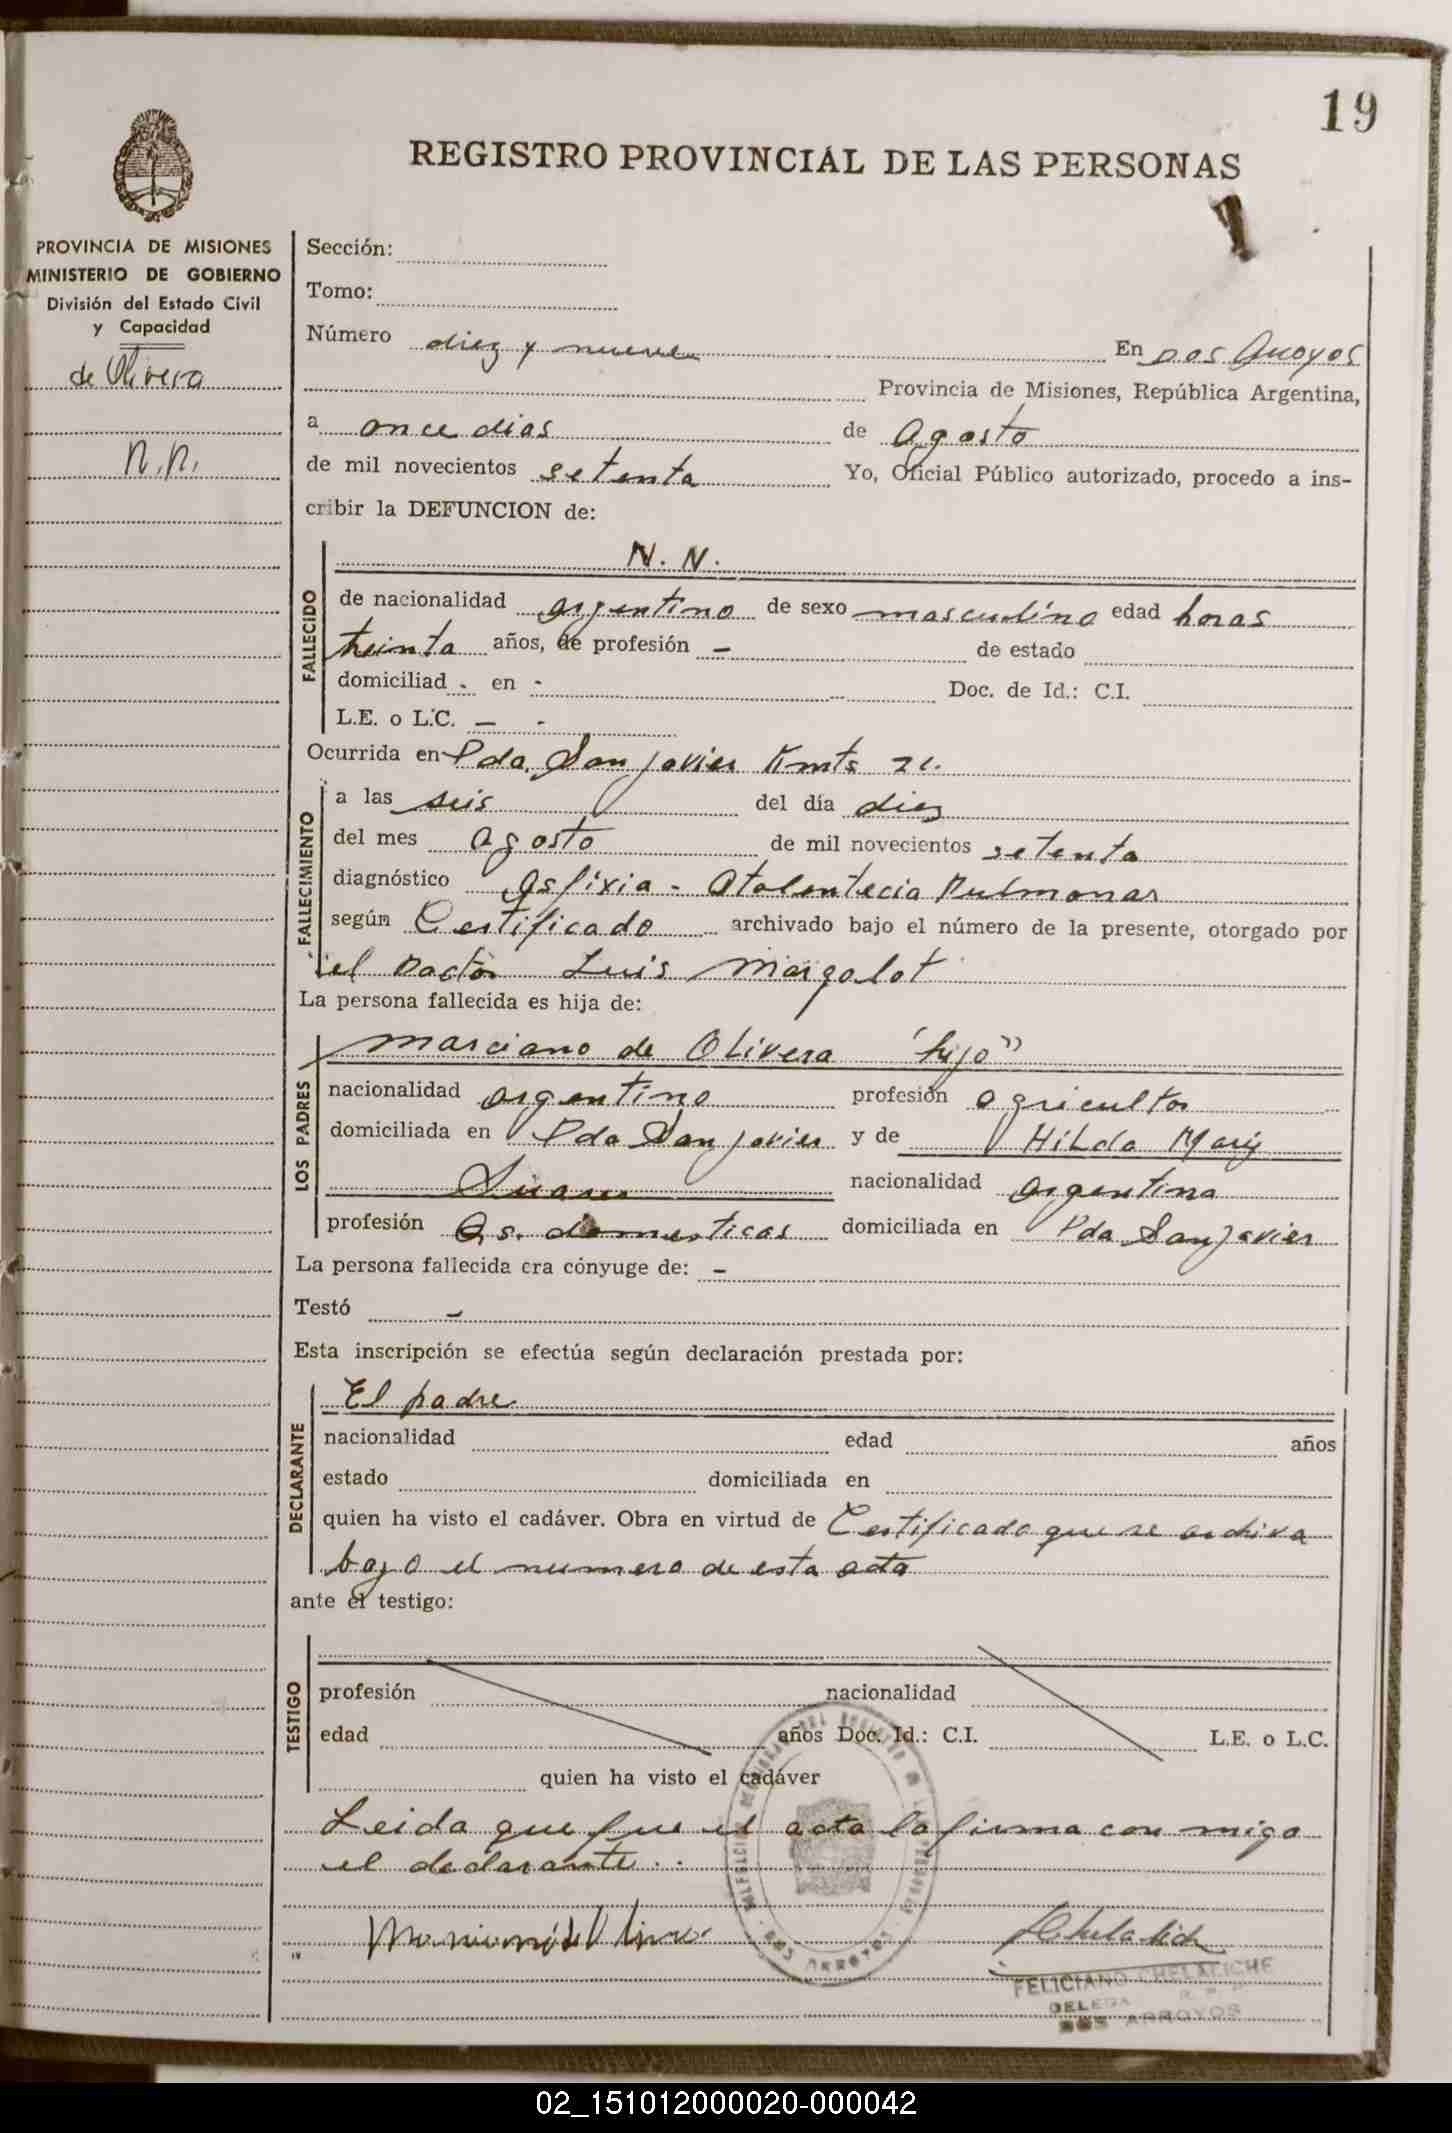 19
REGISTRO PROVINCIAL DE LAS PERSONAS
PROVINCIA DE MISIONES
MINISTERIO DE GOBIERNO
División del Estado Civil
y Capacidad
de Olivera
N.N.
Sección:
Tomo:
Número diez y nueve En Dos Arroyos
Provincia de Misiones, República Argentina,
a once dias de Agosto
de mil novecientos setenta Yo, Oficial Público autorizado, procedo a ins-
cribir la DEFUNCION de:
FALLECIDO
N. N.
de nacionalidad argentino de sexo masculino edad horas
treinta años, de profesión - de estado
domiciliad - en - Doc. de Id.: C.I.
L.E. o L.C. - -
Ocurrida en Pda. San Javier Kmts
FALLECIMIENTO
a las seis del día diez
del mes agosto de mil novecientos setenta
diagnóstico Asfixia - Atelentecia Pulmonar
según Certificado archivado bajo el número de la presente, otorgado por
el Doctor Luis Margalot
La persona fallecida es hija de:
LOS PADRES
Marciano de Olivera "hijo"
nacionalidad argentino profesión agricultor
domiciliada en Pda San Javier y de Hilda
nacionalidad argentina
profesión Qs. domesticos domiciliada en Pda San Javier
La persona fallecida era cónyuge de: -
Testó -
Esta inscripción se efectúa según declaración prestada por:
DECLARANTE
El padre
nacionalidad edad años
estado domiciliada en
quien ha visto el cadáver. Obra en virtud de Certificado que se archiva
bajo el numero de esta acta
ante el testigo:
TESTIGO
profesión nacionalidad
edad años Doc. Id.: C.I. L.E. o L.C.
quien ha visto el cadáver
Leida que fue el acta la firma con migo
el declarante.
FELICIANO CHELALICHE
DOS ARROYOS
02_151012000020-000042